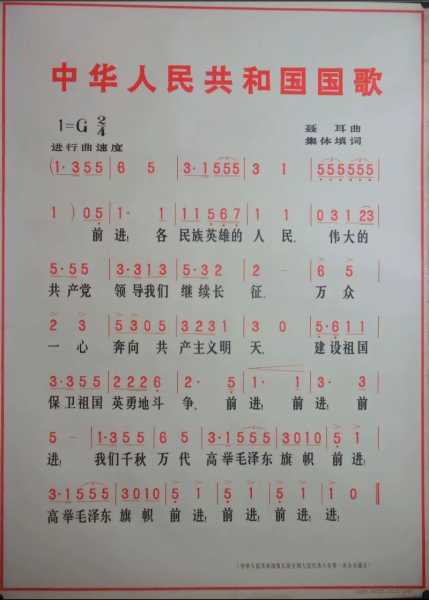 中华人民共和国国歌
1=G 2/4
聂耳曲
进行曲速度
集体填词
(1·3 5 5 | 6 5 | 3·1 5 5 5 | 3 1 | 5 5 5 5 5 5
1 ) 0 5 | 1· 1 | 1 1 5 6 7 | 1 1 | 0 3 1 2 3
前进! 各民族英雄的人民, 伟大的
5·5 5 | 3·3 1 3 | 5·3 2 | 2 - | 6 5
共产党 领导我们 继续长征, 万众
2 3 | 5 3 0 5 | 3 2 3 1 | 3 0 | 5·6 1 1
一心 奔向共产主义明天, 建设祖国
3·3 5 5 | 2 2 2 6 | 2· 5 | 1· 1 | 3· 3
保卫祖国 英勇地斗争, 前进! 前进! 前
5 - | 1·3 5 5 | 6 5 | 3·1 5 5 5 | 3 0 1 0 | 5 1
进! 我们千秋万代 高举毛泽东旗帜 前进!
3·1 5 5 5 | 3 0 1 0 | 5 1 | 5 1 | 5 1 | 1 0
高举毛泽东旗帜 前进! 前进! 前进! 进!